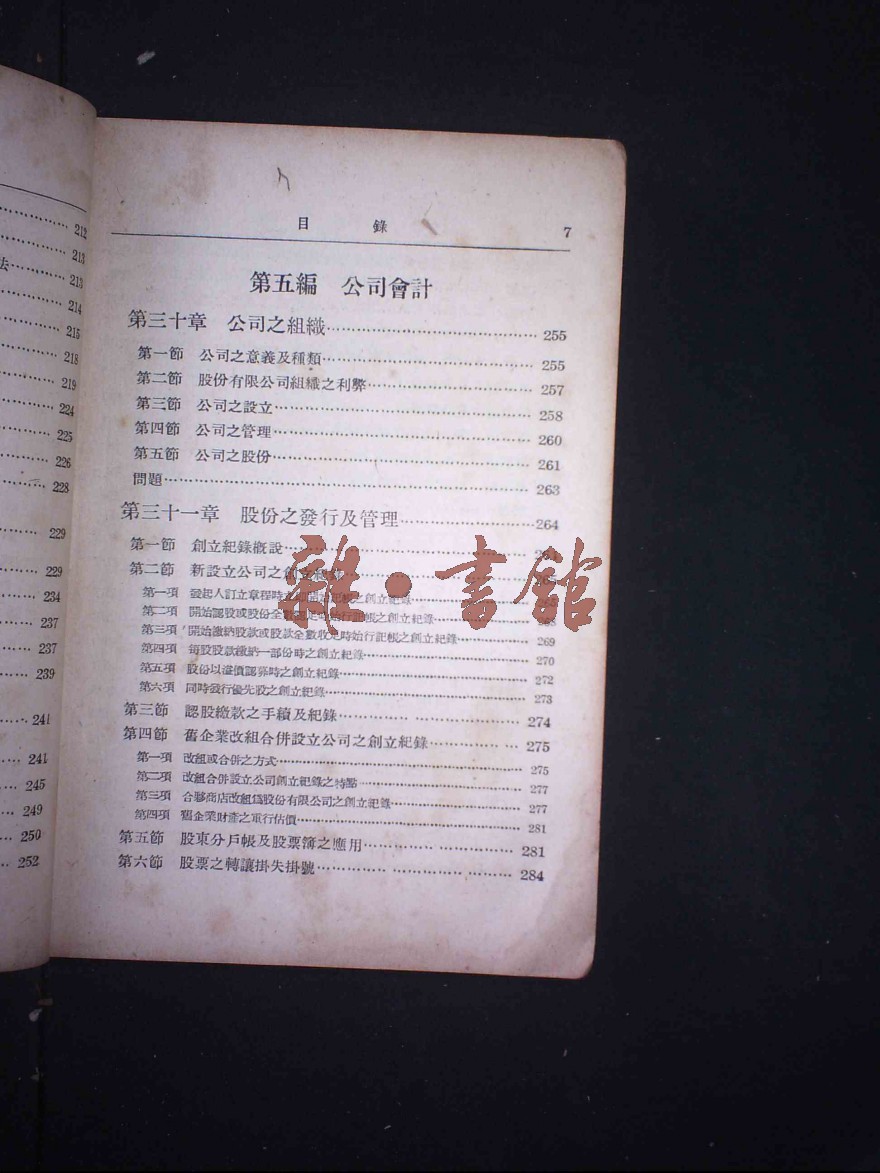 212
213
法 213
214
215
218
219
224
225
226
228
229
229
234
237
237
239
241
241
245
249
250
252
目 錄 7
第五編 公司會計
第三十章 公司之組織 255
第一節 公司之意義及種類 255
第二節 股份有限公司組織之利弊 257
第三節 公司之設立 258
第四節 公司之管理 260
第五節 公司之股份 261
問題 263
第三十一章 股份之發行及管理 264
第一節 創立紀錄概說
第二節 新設立公司之創立紀錄
第一項 發起人訂立章程時 之創立紀錄
第二項 開始認股或股份全數認足時始行記帳之創立紀錄
第三項 開始繳納股款或股款全數收足時始行記帳之創立紀錄 269
第四項 每股股款繳納一部份時之創立紀錄 270
第五項 股份以溢價認募時之創立紀錄 272
第六項 同時發行優先股之創立紀錄 273
第三節 認股繳款之手續及紀錄 274
第四節 舊企業改組合併設立公司之創立紀錄 275
第一項 改組或合併之方式 275
第二項 改組合併設立公司創立紀錄之特點 277
第三項 合夥商店改組爲股份有限公司之創立紀錄 277
第四項 舊企業財產之重行估價 281
第五節 股東分戶帳及股票簿之應用 281
第六節 股票之轉讓掛失掛號 284
雜·書館